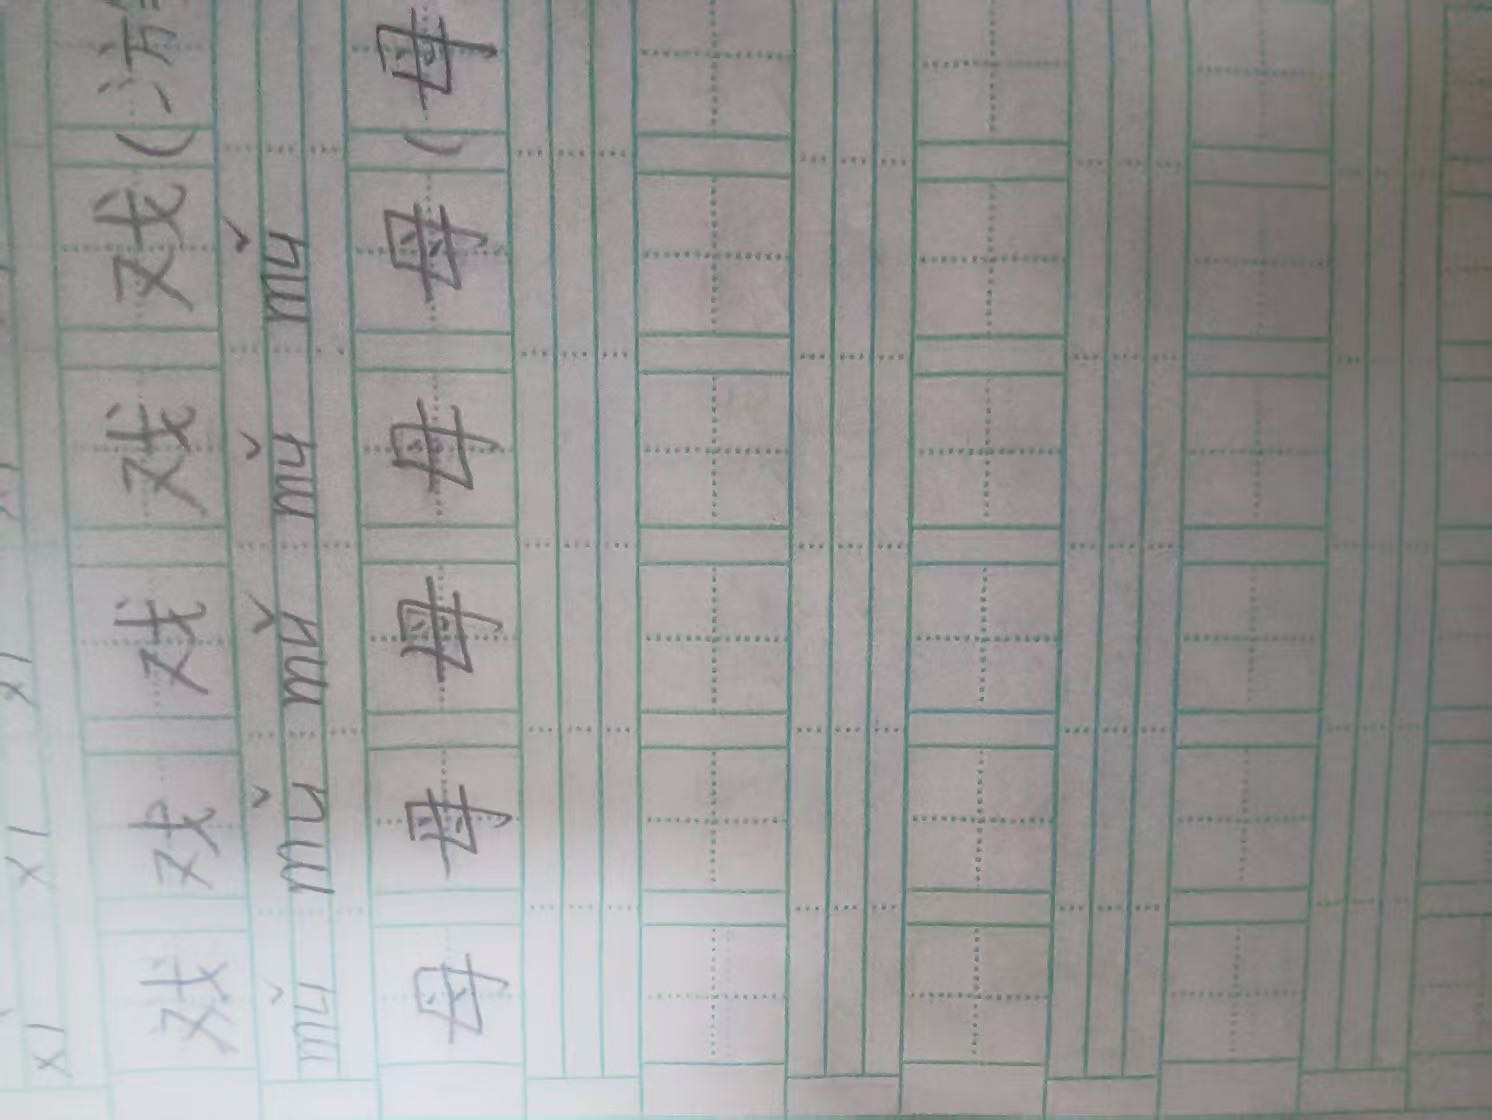 xì xì xì
戏 戏 戏 戏 戏（
mǔ mǔ mǔ mǔ mǔ
母 母 母 母 母（母